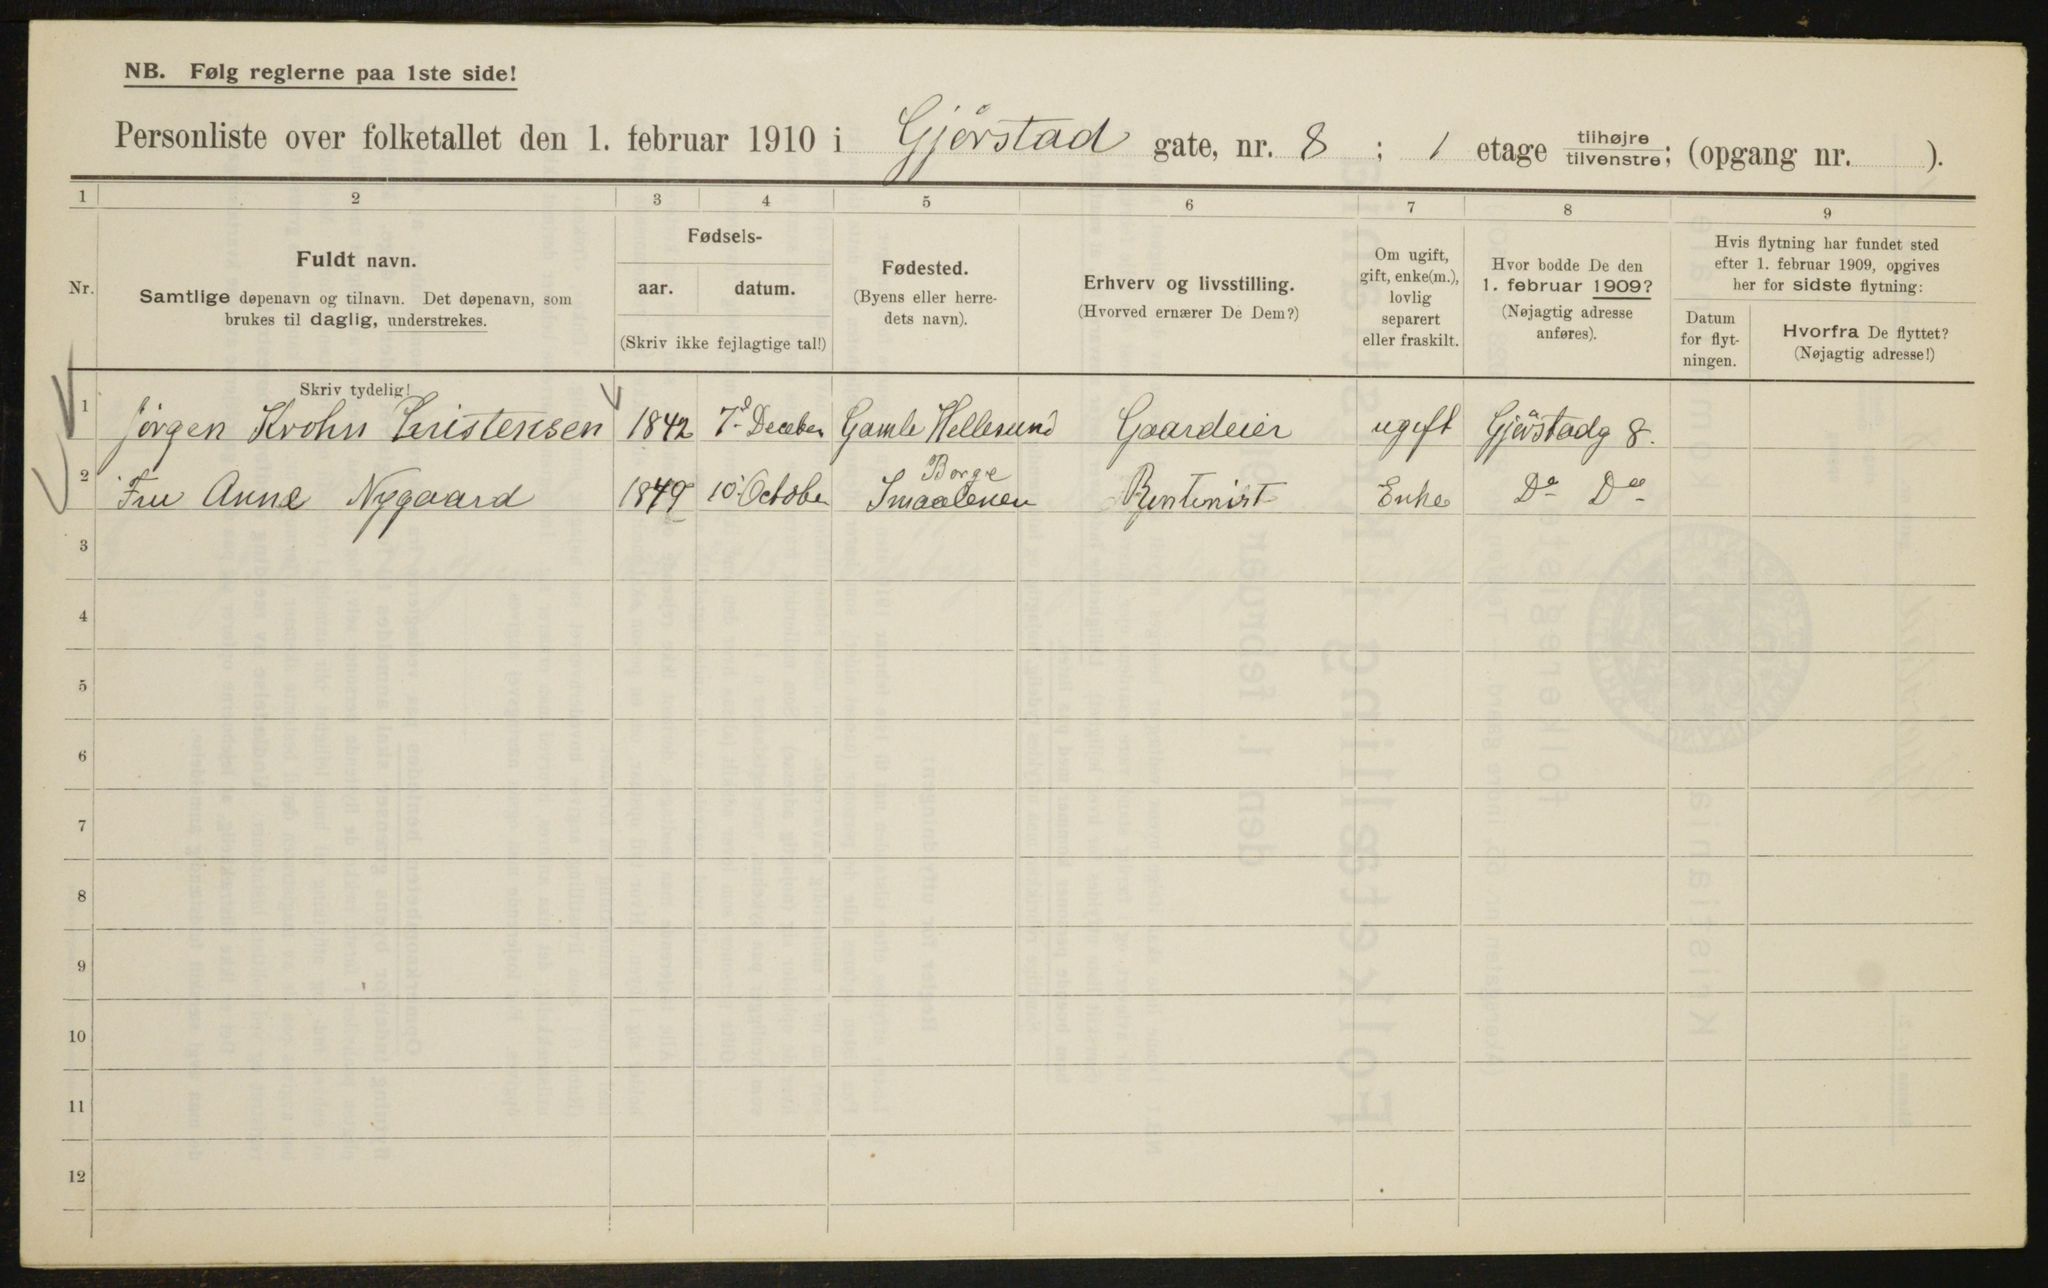 NB. Følg reglerne paa 1ste side!
Personliste over folketallet den 1. februar 1910 i Gjörstad gate, nr. 8 ; 1 etage tilhøjre tilvenstre; (opgang nr. ).
1 2 3 4 5 6 7 8 9
Nr.
Fuldt navn.
Samtlige døpenavn og tilnavn. Det døpenavn, som
brukes til daglig, understrekes.
Skriv tydelig!
Fødsels-
aar. datum.
(Skriv ikke fejlagtige tal!)
Fødested.
(Byens eller herre-
dets navn).
Erhverv og livsstilling.
(Hvorved ernærer De Dem?)
Om ugift,
gift, enke(m.),
lovlig
separert
eller fraskilt.
Hvor bodde De den
1. februar 1909?
(Nøjagtig adresse
anføres).
Hvis flytning har fundet sted
efter 1. februar 1909, opgives
her for sidste flytning:
Datum
for flyt-
ningen.
Hvorfra De flyttet?
(Nøjagtig adresse!)
1 Jörgen Krohn Christensen 1842 7de Deceber Gamle Hellesund Gaardeier ugift Gjörstadg 8.
2 Fru Anne Nygaard 1849 10. October Borge Smaalenen Rentenist Enke Do Do
3
4
5
6
7
8
9
10
11
12